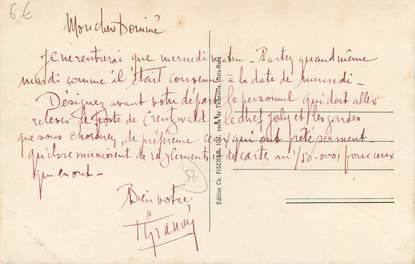 6€
Mon cher Dominé
Je ne rentrerai que mercredi matin - Partez quand même
mardi comme il était convenu à la date de mercredi -
Désignez avant votre départ le personnel qui doit aller
relever le poste de Creutzwald le chef Joly et les gardes
que vous choisirez, de préférence ceux qui ont prêté serment -
qu'ils se munissent de règlements et de carte au 1/50.000e pour ceux
qui en ont -
Bien vôtre,
52
Edition Ch. FISCHER, 102, route de Thionville,